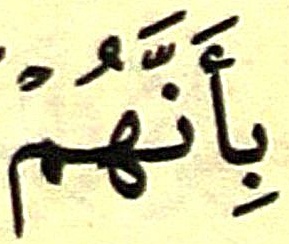 بِأَنَّهُمْ